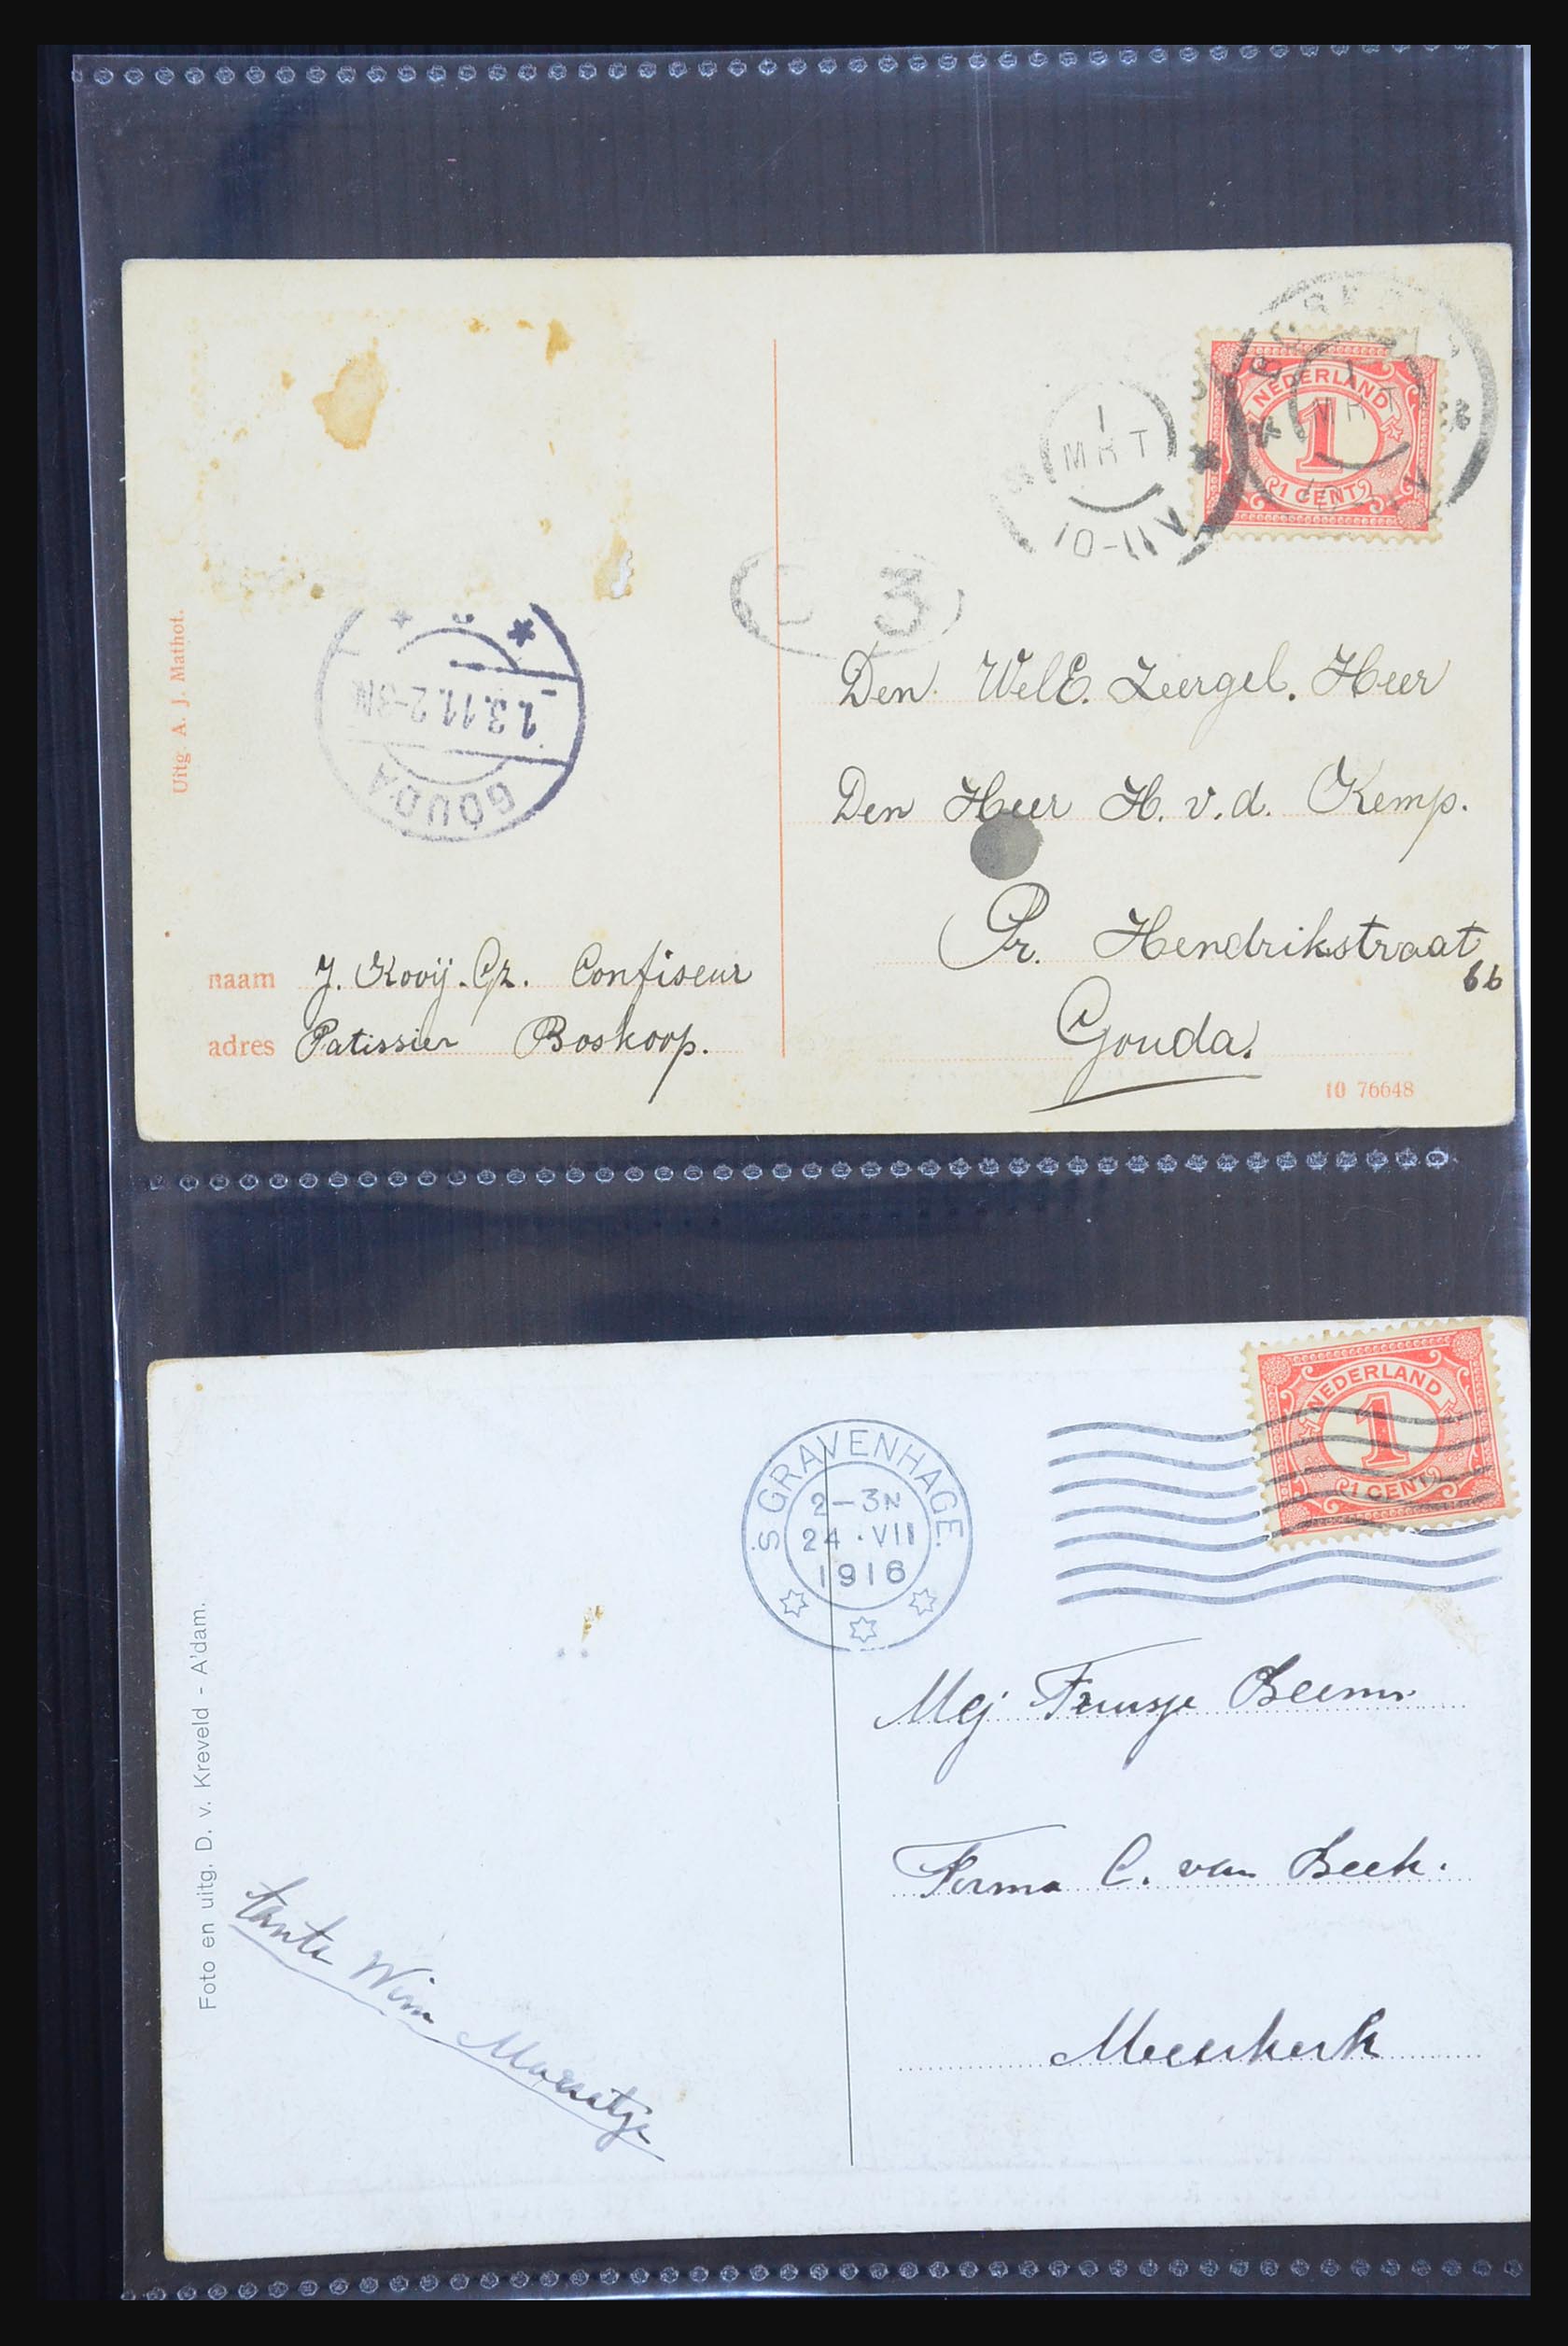 NEDERLAND
1
1 CENT
1
MRT
10-11V
1
MRT
3
Uitg. A. J. Mathot.
1.3.11.2-3N
GOUDA
Den WelE. Zeergel. Heer
Den Heer H. v. d. Kemp.
Pr. Hendrikstraat
6b
Gouda.
naam J. Kooij.Gz. Confiseur
adres Patissier Boskoop.
10 76648
NEDERLAND
1
1 CENT
'S GRAVENHAGE.
2-3N
24.VII
1916
Mej Truusje
Firma C. van Beek.
Meerkerk
Foto en uitg. D. v. Kreveld - A'dam.
tante Wim